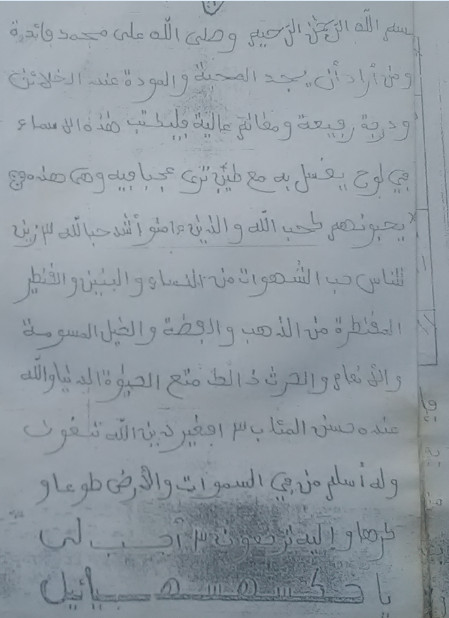 بسم الله الرحمن الرحيم وصلى الله على محمد فائدة
ومن أراد أن يجد المحبة والمودة عند الخلائق
ودرجة رفيعة ومقاما عالية فليكتب هذه الاسماء
في لوح يغسل به مع طيب ترى عجبا فيه وهي هذه
يحبونهم كحب الله والذين ءامنوا أشد حبا لله ٣ زين
للناس حب الشهوات من النساء والبنين والقنطير
المقنطرة من الذهب والفضة والخيل المسومة
والأنعام والحرث ذالك متع الحيوة الدنيا والله
عنده حسن المئاب ٣ افغير دين الله تبغون
وله أسلم من في السموات والأرض طوعا و
كرها واليه ترجعون ٣ أجب لى
يا